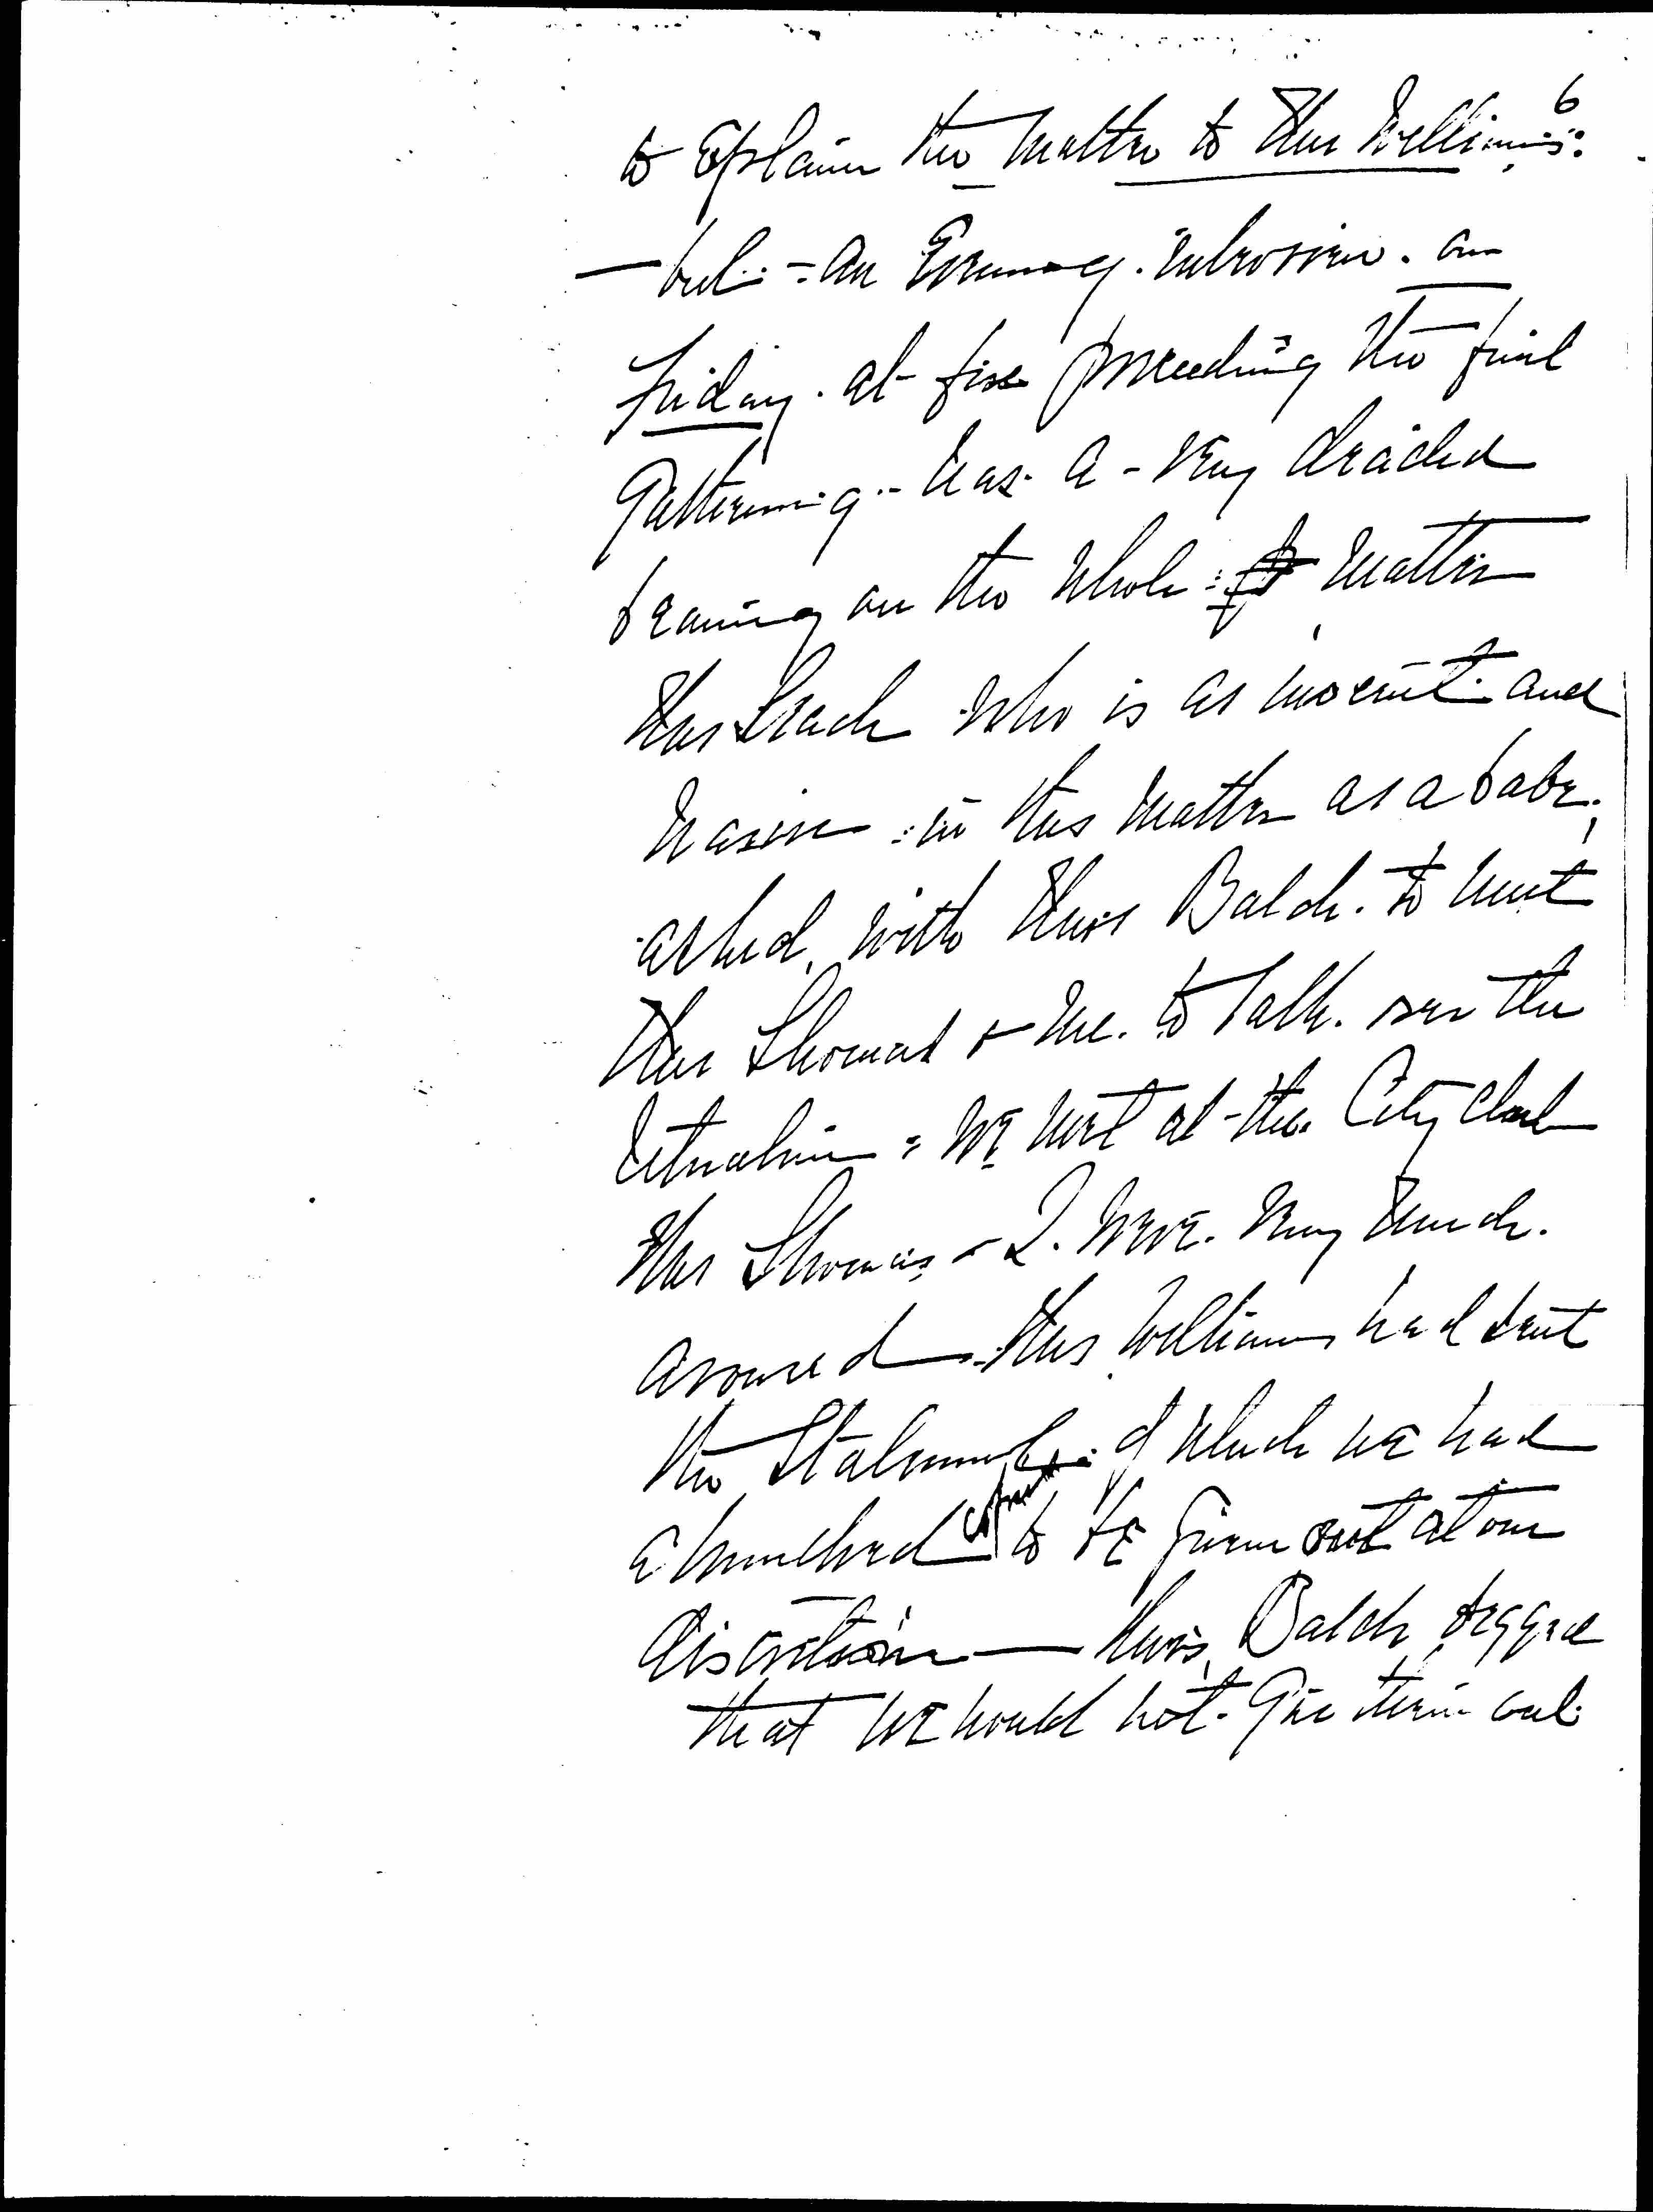 6
to Explain the matter to Mrs Williams:
— but — an Evening interview. on
Friday. at five preceeding the final
Gathering — was. a — very decided
bearing on the whole matter
Mrs Leach who is as innocent and
naive in this matter as a babe,
asked, with Miss Balch. to meet
Mrs Thomas & me. to talk. over the
situation = We met at the. City Club
Mrs Thomas & I. were. very much.
aroused — Mrs Williams had sent
the Statement — of which we had
a hundred copies to be given out at our
discretion — Miss Balch begged
that we would not. Give them out.